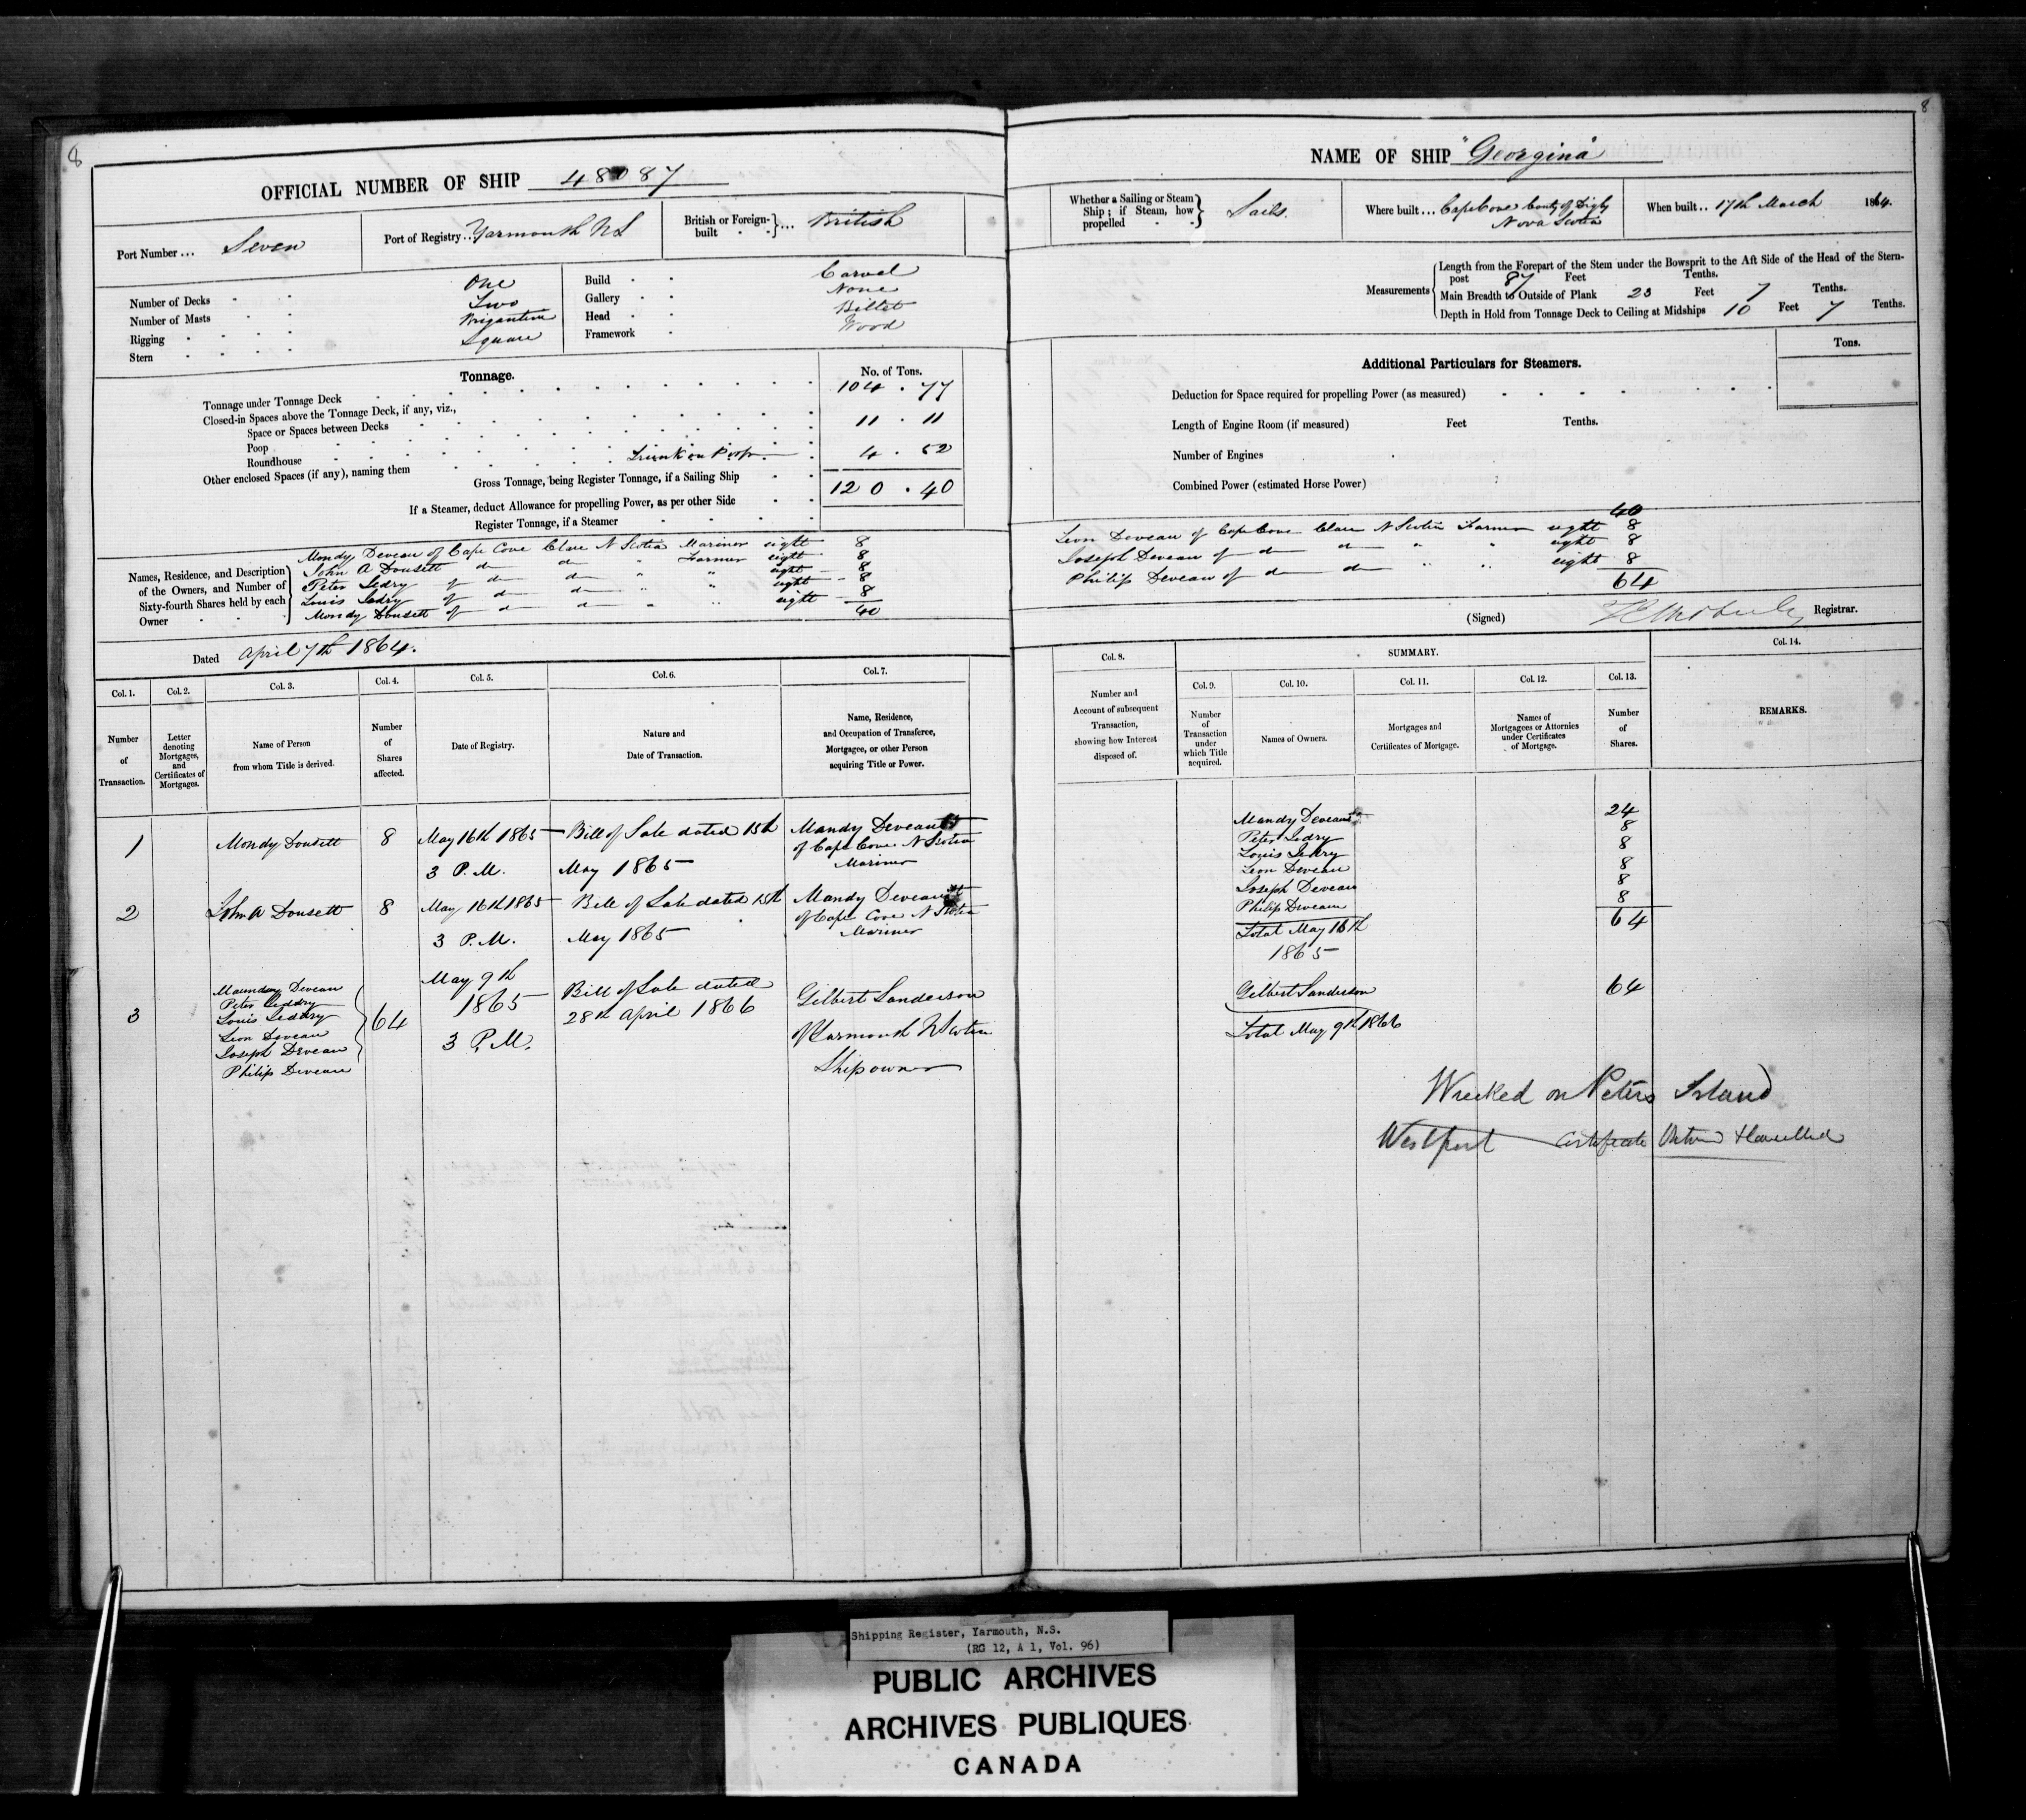 8
OFFICIAL NUMBER OF SHIP 48087
Port Number ... Seven
Port of Registry .. Yarmouth NS
British or Foreign-built } ... British
Number of Decks One
Number of Masts Two
Rigging Brigantine
Stern Square
Build Carvel
Gallery None
Head Billet
Framework Wood
Tonnage.
No. of Tons.
Tonnage under Tonnage Deck 104 . 77
Closed-in Spaces above the Tonnage Deck, if any, viz.,
Space or Spaces between Decks
Poop 11 . 11
Roundhouse
Other enclosed Spaces (if any), naming them Trunk on Poop 4 . 52
Gross Tonnage, being Register Tonnage, if a Sailing Ship 120 . 40
If a Steamer, deduct Allowance for propelling Power, as per other Side
Register Tonnage, if a Steamer
Names, Residence, and Description of the Owners, and Number of Sixty-fourth Shares held by each Owner
Mondy Deveau of Cape Cove Clare N Scotia Mariner eight 8
John A Dousett do do " Farmer eight 8
Peter Ledry of do do " " eight 8
Louis Ledry of do do " " eight 8
Mondy Dousett of do do " " eight 8
40
Dated April 7th 1864.
Col. 1. Col. 2. Col. 3. Col. 4. Col. 5. Col. 6. Col. 7.
Number of Transaction.
Letter denoting Mortgages, and Certificates of Mortgages.
Name of Person from whom Title is derived.
Number of Shares affected.
Date of Registry.
Nature and Date of Transaction.
Name, Residence, and Occupation of Transferee, Mortgagee, or other Person acquiring Title or Power.
1 Mondy Doucett 8 May 16th 1865 Bill of Sale dated 15th Mandy Deveau
of Cape Cove N Scotia
3 P.M. May 1865 Mariner
2 John A Doucett 8 May 16th 1865 Bill of Sale dated 15th Mandy Deveau
of Cape Cove N Scotia
3 P.M. May 1865 Mariner
3
Maunday Deveau
Peter Leddry
Louis Leddry
Leon Deveau
Joseph Deveau
Philip Deveau
64
May 9th
1865
3 P.M.
Bill of Sale dated
28th April 1866
Gilbert Sanderson
of Yarmouth N Scotia
Shipowner
8
NAME OF SHIP "Georgina"
Whether a Sailing or Steam Ship; if Steam, how propelled } Sails.
Where built ... Cape Cove County of Digby
Nova Scotia
When built .. 17th March 1864.
Measurements
Length from the Forepart of the Stem under the Bowsprit to the Aft Side of the Head of the Stern-
post 87 Feet Tenths.
Main Breadth to Outside of Plank 23 Feet 7 Tenths.
Depth in Hold from Tonnage Deck to Ceiling at Midships 10 Feet 7 Tenths.
Additional Particulars for Steamers.
Tons.
Deduction for Space required for propelling Power (as measured)
Length of Engine Room (if measured) Feet Tenths.
Number of Engines
Combined Power (estimated Horse Power)
40
Leon Deveau of Cape Cove Clare N Scotia Farmer eight 8
Joseph Deveau of do do " " eight 8
Philip Deveau of do do " " eight 8
64
(Signed) Registrar.
Col. 8.
SUMMARY.
Col. 14.
Col. 9. Col. 10. Col. 11. Col. 12. Col. 13.
Number and Account of subsequent Transaction, showing how Interest disposed of.
Number of Transaction under which Title acquired.
Names of Owners.
Mortgages and Certificates of Mortgage.
Names of Mortgagees or Attornies under Certificates of Mortgage.
Number of Shares.
REMARKS.
Mandy Deveau 24
Peter Ledry 8
Louis Ledry 8
Leon Deveau 8
Joseph Deveau 8
Philip Deveau 8
Total May 16th 64
1865
Gilbert Sanderson 64
Total May 9th 1866
Wrecked on Peters Island
Westport Certificate
Shipping Register, Yarmouth, N.S.
(RG 12, A 1, Vol. 96)
PUBLIC ARCHIVES
ARCHIVES PUBLIQUES
CANADA